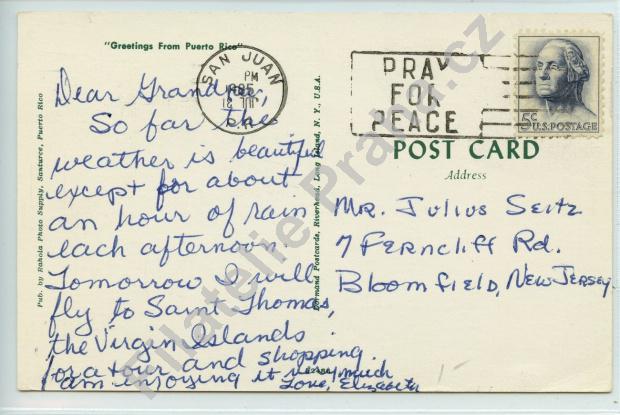 "Greetings From Puerto Rico"
Dear Grandpa,
So far the
weather is beautiful
except for about
an hour of rain
each afternoon.
Tomorrow I will
fly to Saint Thomas,
the Virgin Islands
for a tour and shopping.
I am enjoying it very much
Love, Elizabeth
Pub. by Rahola Photo Supply, Santurce, Puerto Rico
Dormand Postcards, Riverhead, Long Island, N. Y., U.S.A.
SAN JUAN
PM
P.R.
PRAY
FOR
PEACE
5c U.S. POSTAGE
POST CARD
Address
Mr. Julius Seitz
7 Ferncliff Rd.
Bloomfield, New Jersey
Filatelie Praha.cz